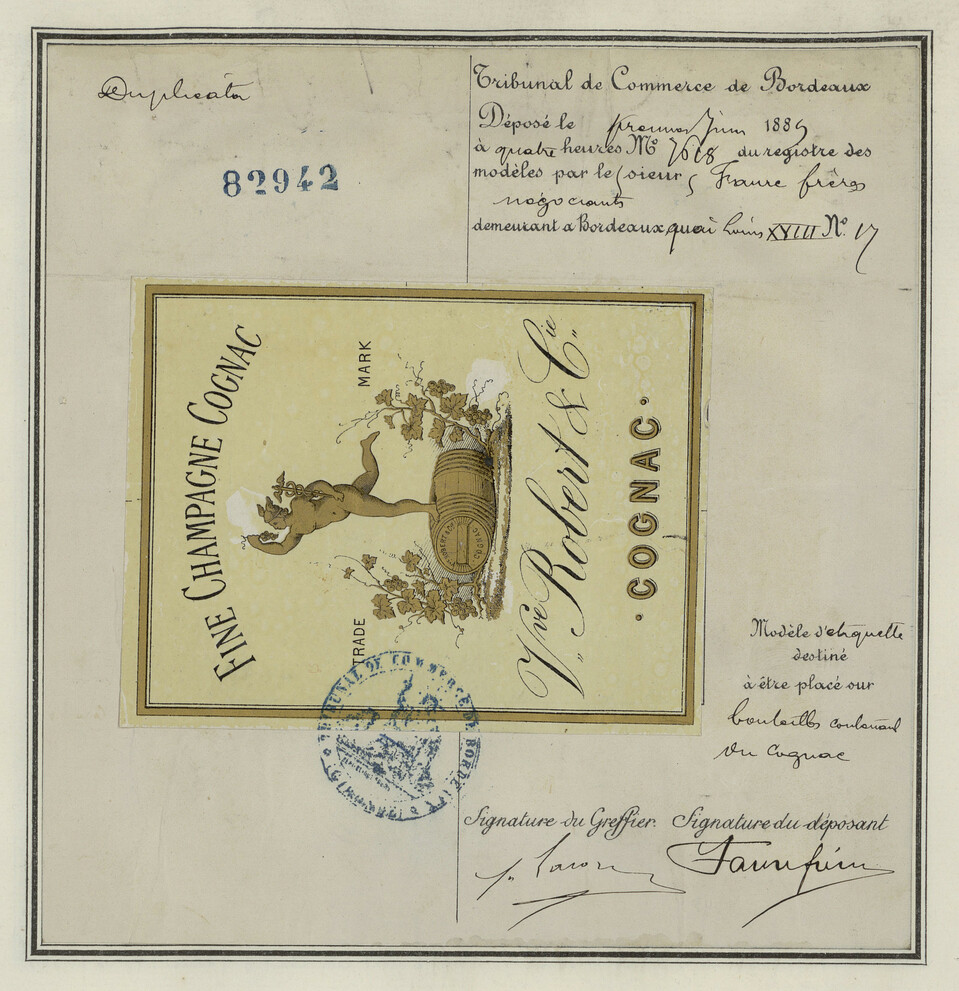 Duplicata
82942
Tribunal de Commerce de Bordeaux
Déposé le premier Juin 1885
à quatre heures Nº 7618 du registre des
modèles par le sieurs Faure frères
négociants
demeurant à Bordeaux quai Louis XVIII Nº 17
FINE CHAMPAGNE COGNAC
TRADE MARK
COGNAC
Vve Robert & Cie
· COGNAC ·
TRIBUNAL DE COMMERCE DE BORDEAUX
Modèle d'etiquette
destiné
à être placé sur
bouteilles contenant
du Cognac
Signature du Greffier. Signature du déposant
Faure frères